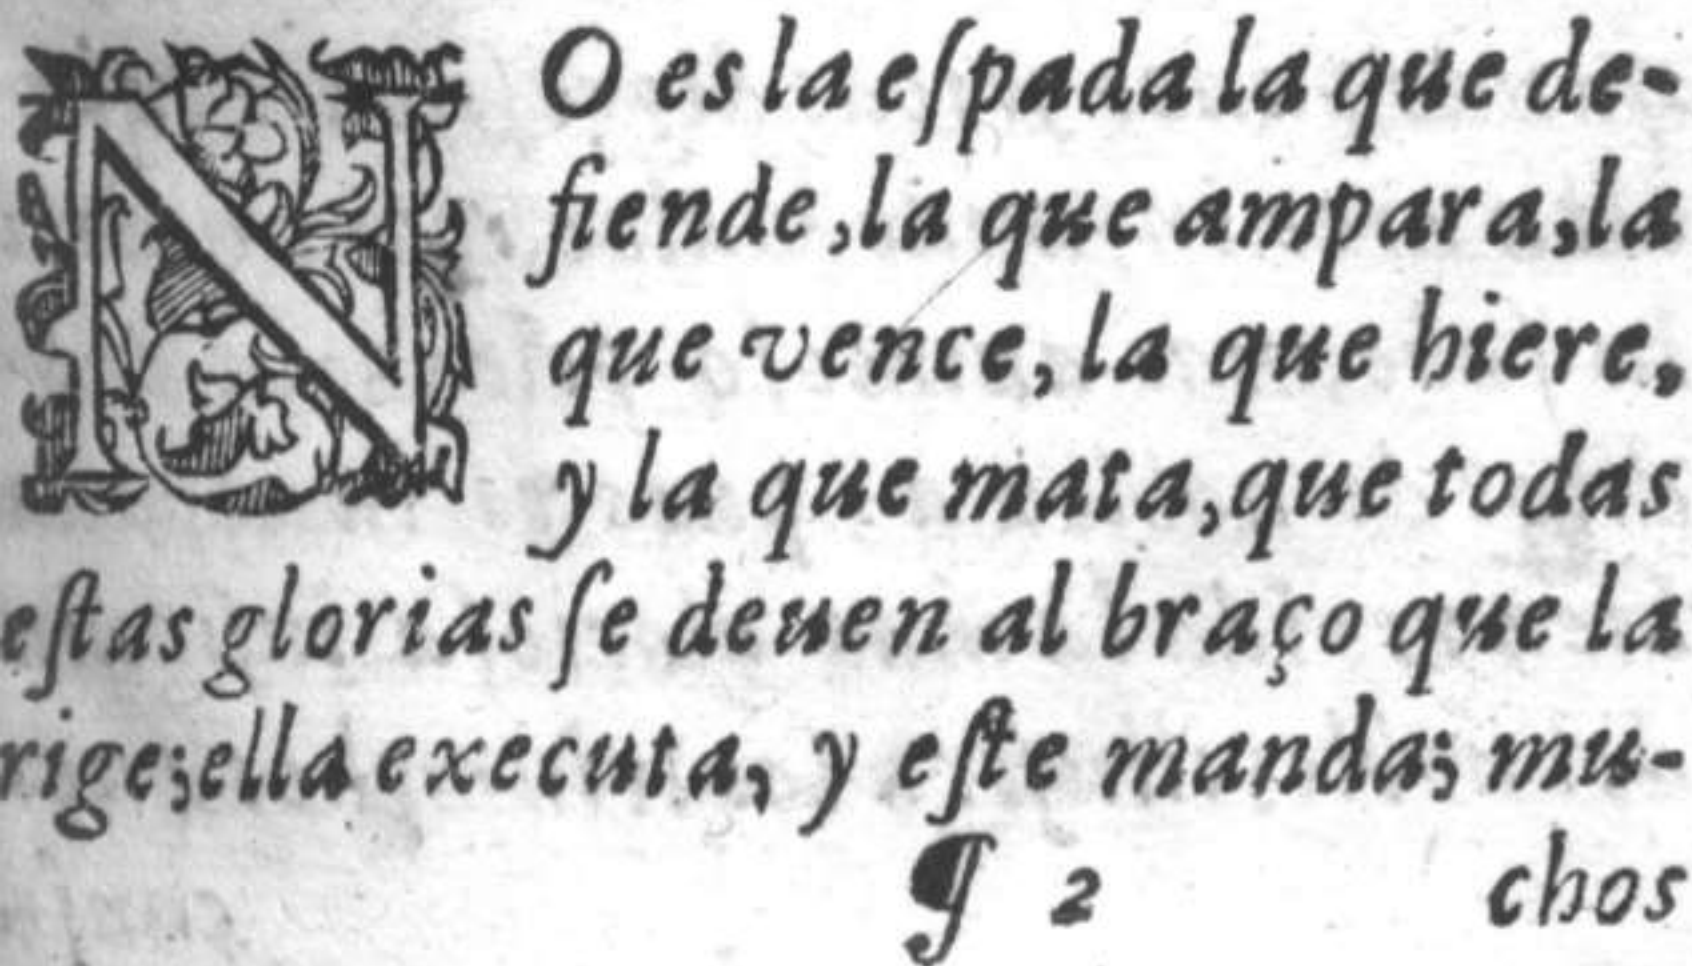 NO es la eſpada la que de-
fiende, la que ampara, la
que vence, la que hiere,
y la que mata, que todas
eſtas glorias ſe deuen al braço que la
rige; ella executa, y eſte manda; mu-
¶ 2 chos